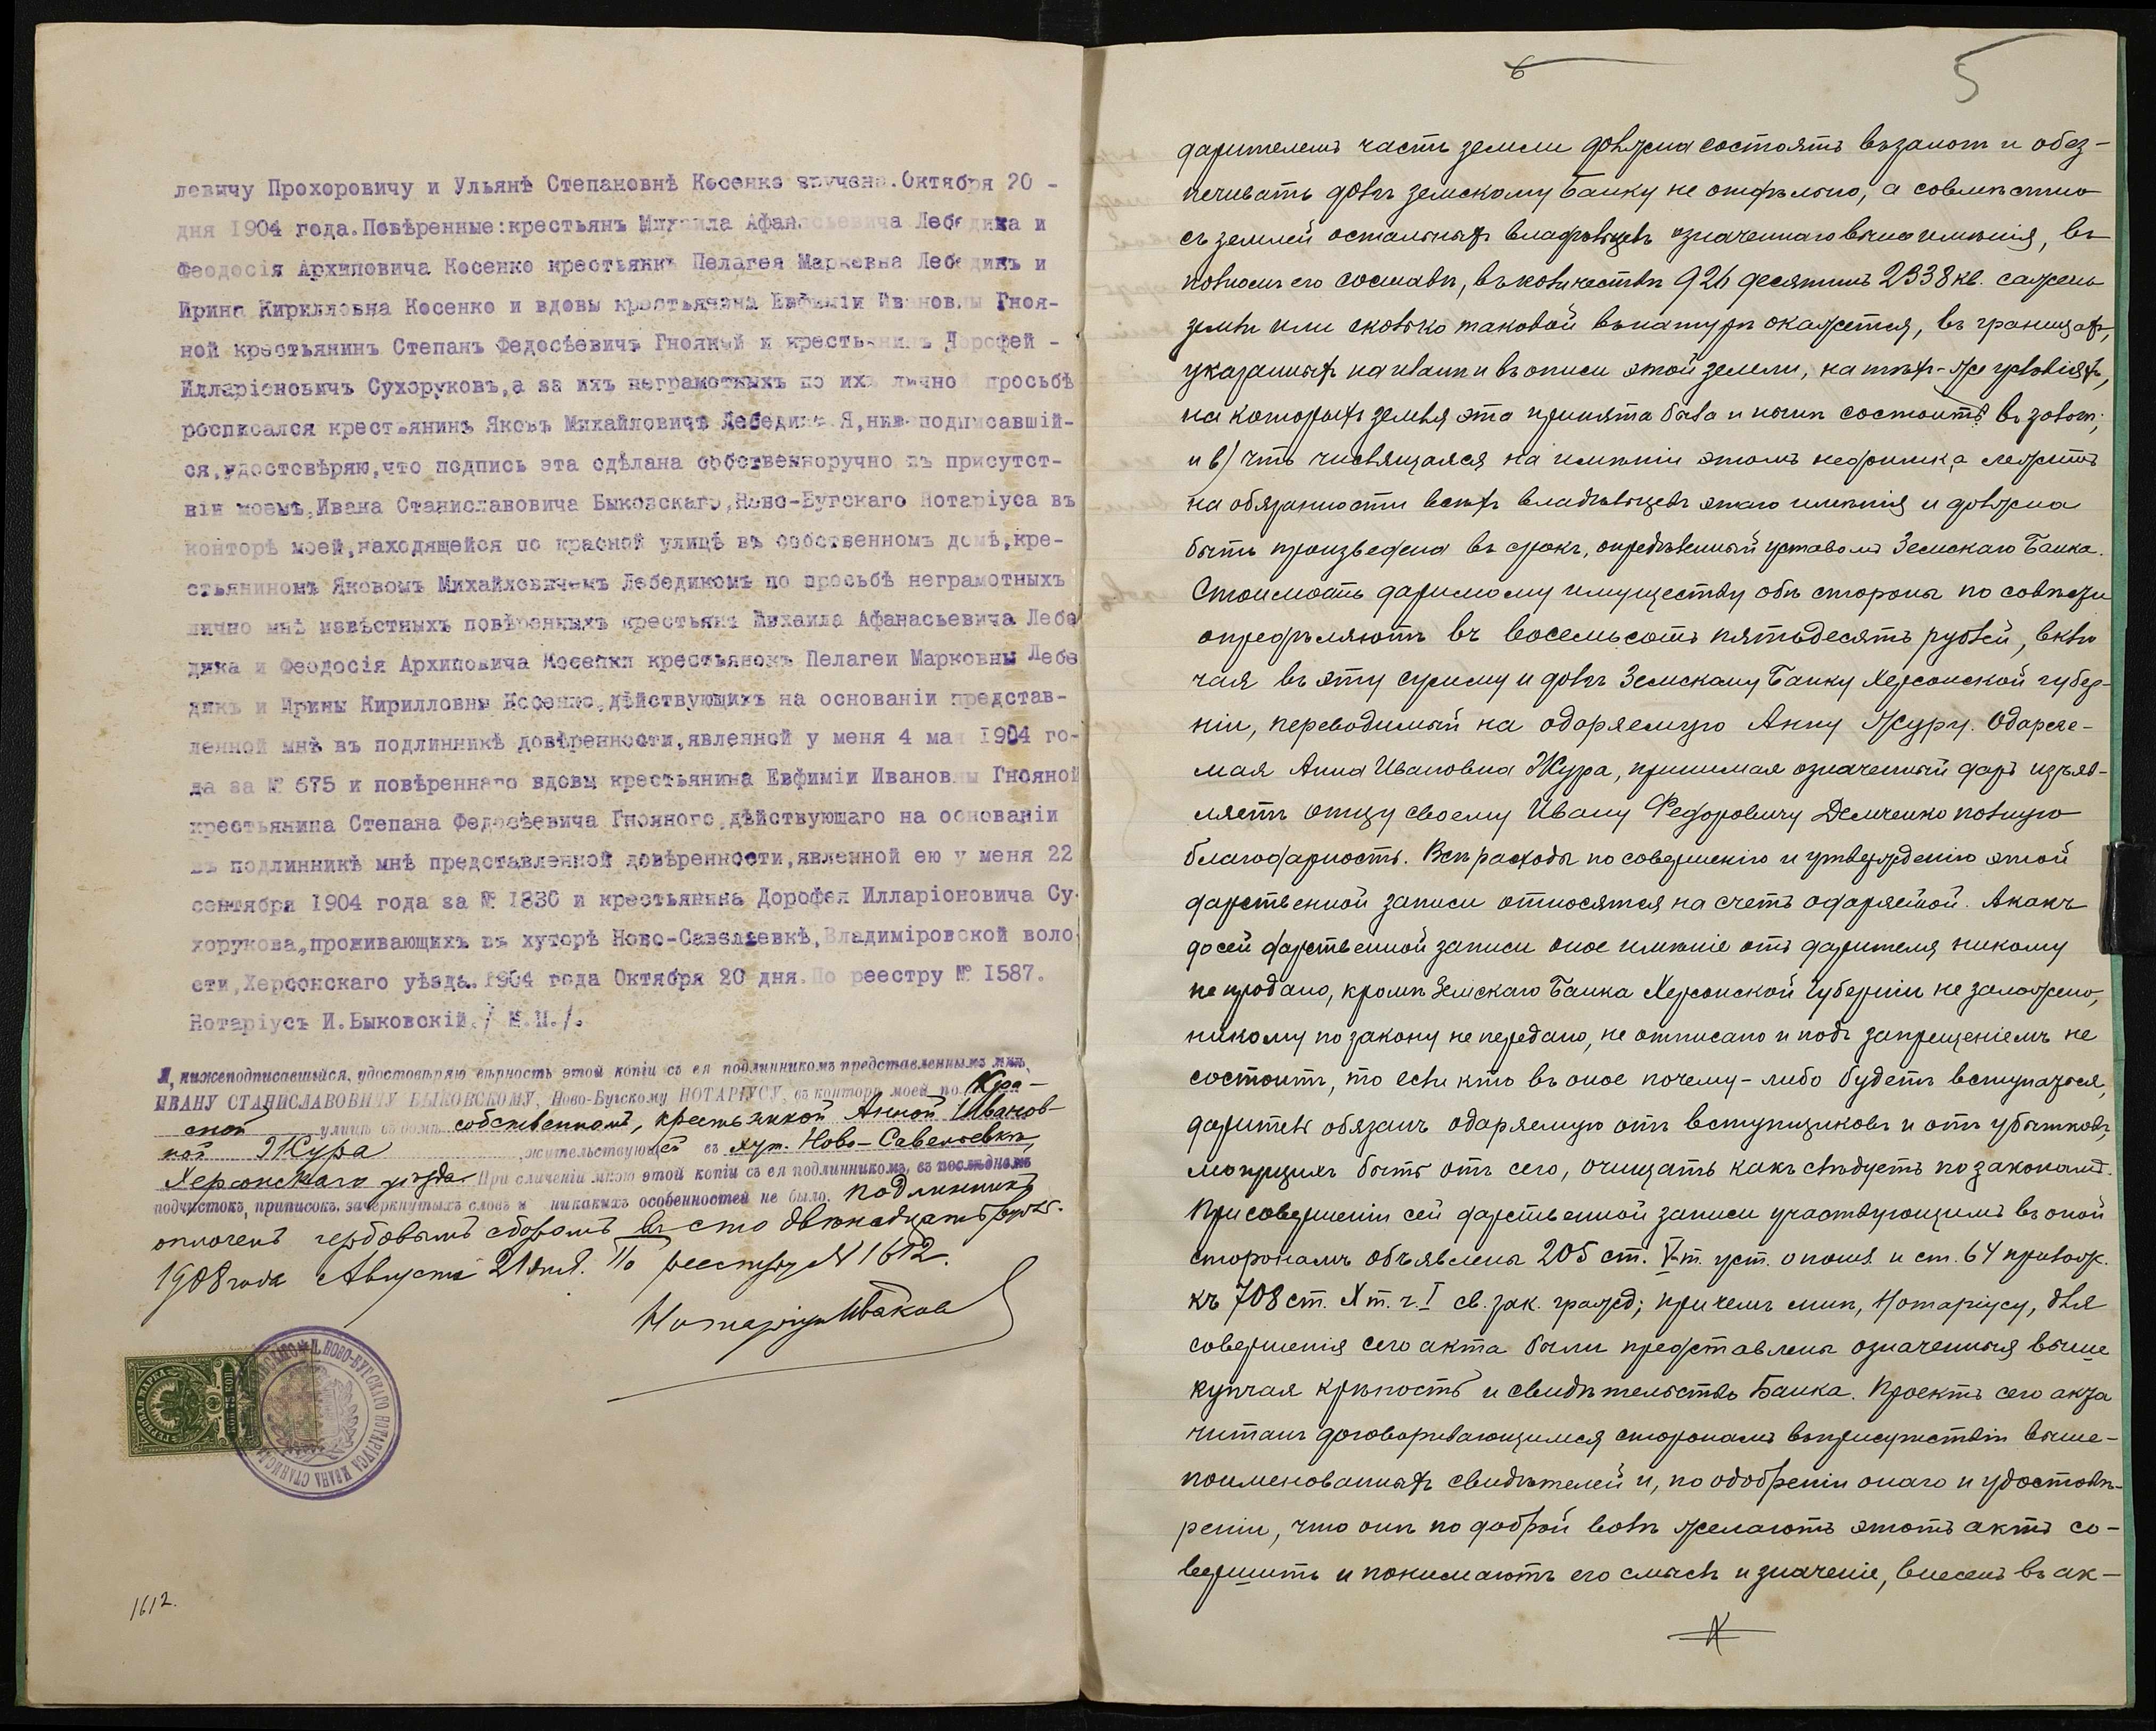 левичу Прохоровичу и Ульянѣ Степановнѣ Косенко вручена. Октября 20 -
дня 1904 года. Повѣренные: крестьянъ Михаила Афанасьевича Лебедика и
Феодосія Архиповича Косенко крестьянки Пелагея Марковна Лебедикъ и
Ирина Кирилловна Косенко и вдовы крестьянина Евфиміи Ивановны Гноя-
ной крестьянинъ Степанъ Федосѣевичъ Гнояный и крестьянинъ Дорофей -
Илларіоновичъ Сухоруковъ, а за ихъ неграмотныхъ по ихъ личной просьбѣ
росписался крестьянинъ Яковъ Михайловичъ Лебедикъ. Я, нижеподписавшій-
ся, удостовѣряю, что подпись эта сдѣлана собственноручно въ присутст-
віи моемъ, Ивана Станиславовича Быковскаго, Ново-Бугскаго Нотаріуса въ
конторѣ моей, находящейся по красной улицѣ въ собственномъ домѣ, кре-
стьяниномъ Яковомъ Михайловичемъ Лебедикомъ по просьбѣ неграмотныхъ
лично мнѣ извѣстныхъ повѣренныхъ крестьянъ Михаила Афанасьевича Лебе
дика и Феодосія Архиповича Косенки крестьянокъ Пелагеи Марковны Лебе
дикъ и Ирины Кирилловны Косенко, дѣйствующихъ на основаніи представ-
ленной мнѣ въ подлинникѣ довѣренности, явленной у меня 4 мая 1904 го-
да за № 675 и повѣреннаго вдовы крестьянина Евфиміи Ивановны Гнояной
крестьянина Степана Федосѣевича Гнояного, дѣйствующаго на основаніи
въ подлинникѣ мнѣ представленной довѣренности, явленной ею у меня 22
сентября 1904 года за № 1830 и крестьянина Дорофея Илларіоновича Су-
хорукова, проживающихъ въ хуторѣ Ново-Савельевкѣ, Владиміровской воло
сти, Херсонскаго уѣзда. 1904 года Октября 20 дня. По реестру № 1587.
Нотаріусъ И. Быковскій. / М.П./.
Я, нижеподписавшійся, удостовѣряю вѣрность этой копіи съ ея подлинникомъ представленнымъ мнѣ,
ИВАНУ СТАНИСЛАВОВИЧУ БЫКОВСКОМУ, Ново-Бугскому НОТАРІУСУ, въ конторѣ моей по Кра-
сной улицѣ въ домѣ собственномъ, крестьянкой Анной Иванов-
ной Жура, жительствующей въ хут. Ново-Савельевкѣ,
Херсонскаго уѣзда При сличеніи мною этой копіи съ ея подлинникомъ, въ послѣднемъ
подчистокъ, приписокъ, зачеркнутыхъ словъ и никакихъ особенностей не было. Подлинникъ
оплоченъ гербовымъ сборомъ въ сто двѣнадцать рубл.
1908 года Августа 21 дня. По реестру № 1612.
Нотаріусъ
ГЕРБОВАЯ МАРКА
75 КОП
Н. НОВО-БУГСКАГО НОТАРІУСА ИВАНА СТАНИСЛ
1612.
6
5
дарителемъ часть земли должна состоять въ залогѣ и обез-
печивать долгъ земскому Банку не отдѣльно, а совмѣстно
съ землей остальныхъ владѣльцевъ означеннаго выше имѣнія, въ
полномъ его составѣ, въ количествѣ 926 десятинъ 2338 кв. сажень
земли или сколько таковой въ натурѣ окажется, въ границахъ,
указанныхъ на планѣ и въ описи этой земли, на тѣхъ-же условіяхъ,
на которыхъ земля эта принята была и нынѣ состоитъ въ залогѣ;
и в) что числящаяся на имѣніи этомъ недоимка лежитъ
на обязанности всѣхъ владѣльцевъ этаго имѣнія и должна
быть произведена въ срокъ, опредѣленный уставомъ Земскаго Банка.
Стоимость даримому имуществу обѣ стороны по совѣсти
опредѣляютъ въ восемьсотъ пятьдесятъ рублей, вклю
чая въ эту сумму и долгъ Земскому Банку Херсонской губер-
ніи, переводимый на одоряемую Анну Журу. Одаряе-
мая Анна Ивановна Жура, принимая означенный даръ изъяв-
ляетъ отцу своему Ивану Федоровичу Демченко полную
благодарность. Всѣ расходы по совершенію и утвержденію этой
дарственной записи относятся на счетъ одаряемой. А какъ
до сей дарственной записи оное имѣніе отъ дарителя никому
не продано, кромѣ Земскаго Банка Херсонской Губерніи не заложено,
никому по закону не передано, не отписано и подъ запрещеніемъ не
состоитъ, то если кто въ оное почему-либо будетъ вступаться,
даритель обязанъ одаряемую отъ вступщиковъ и отъ убытковъ,
могущихъ быть отъ сего, очищать какъ слѣдуетъ по законамъ.
При совершеніи сей дарственной записи участвующимъ въ оной
сторонамъ объявлены 205 ст. V т. уст. о пошл. и ст. 64 прилож.
къ 708 ст. X т. ч. I св. зак. гражд; причемъ мнѣ, Нотаріусу, для
совершенія сего акта были представлены означенныя выше
купчая крѣпость и свидѣтельство Банка. Проектъ сего акта
читанъ договаривающимся сторонамъ въ присутствіи выше-
поименованныхъ свидѣтелей и, по одобреніи онаго и удостовѣ-
реніи, что онѣ по доброй волѣ желаютъ этотъ актъ со-
вершить и понимаютъ его смыслъ и значеніе, внесенъ въ ак-